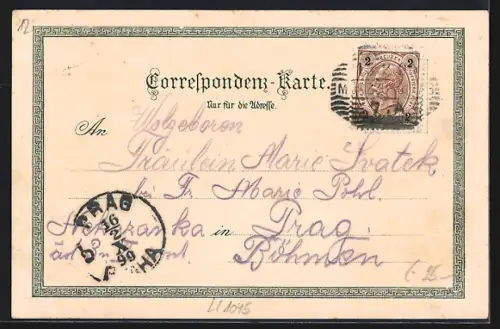 12
2 2
Correspondenz-Karte.
Nur für die Adresse.
M
An Wolgeboren
Fräulein Marie Svatek
bei Fr Marie Pohl
in Prag
Böhmen
PRAG
16
X
99
PRAHA
LL 1045